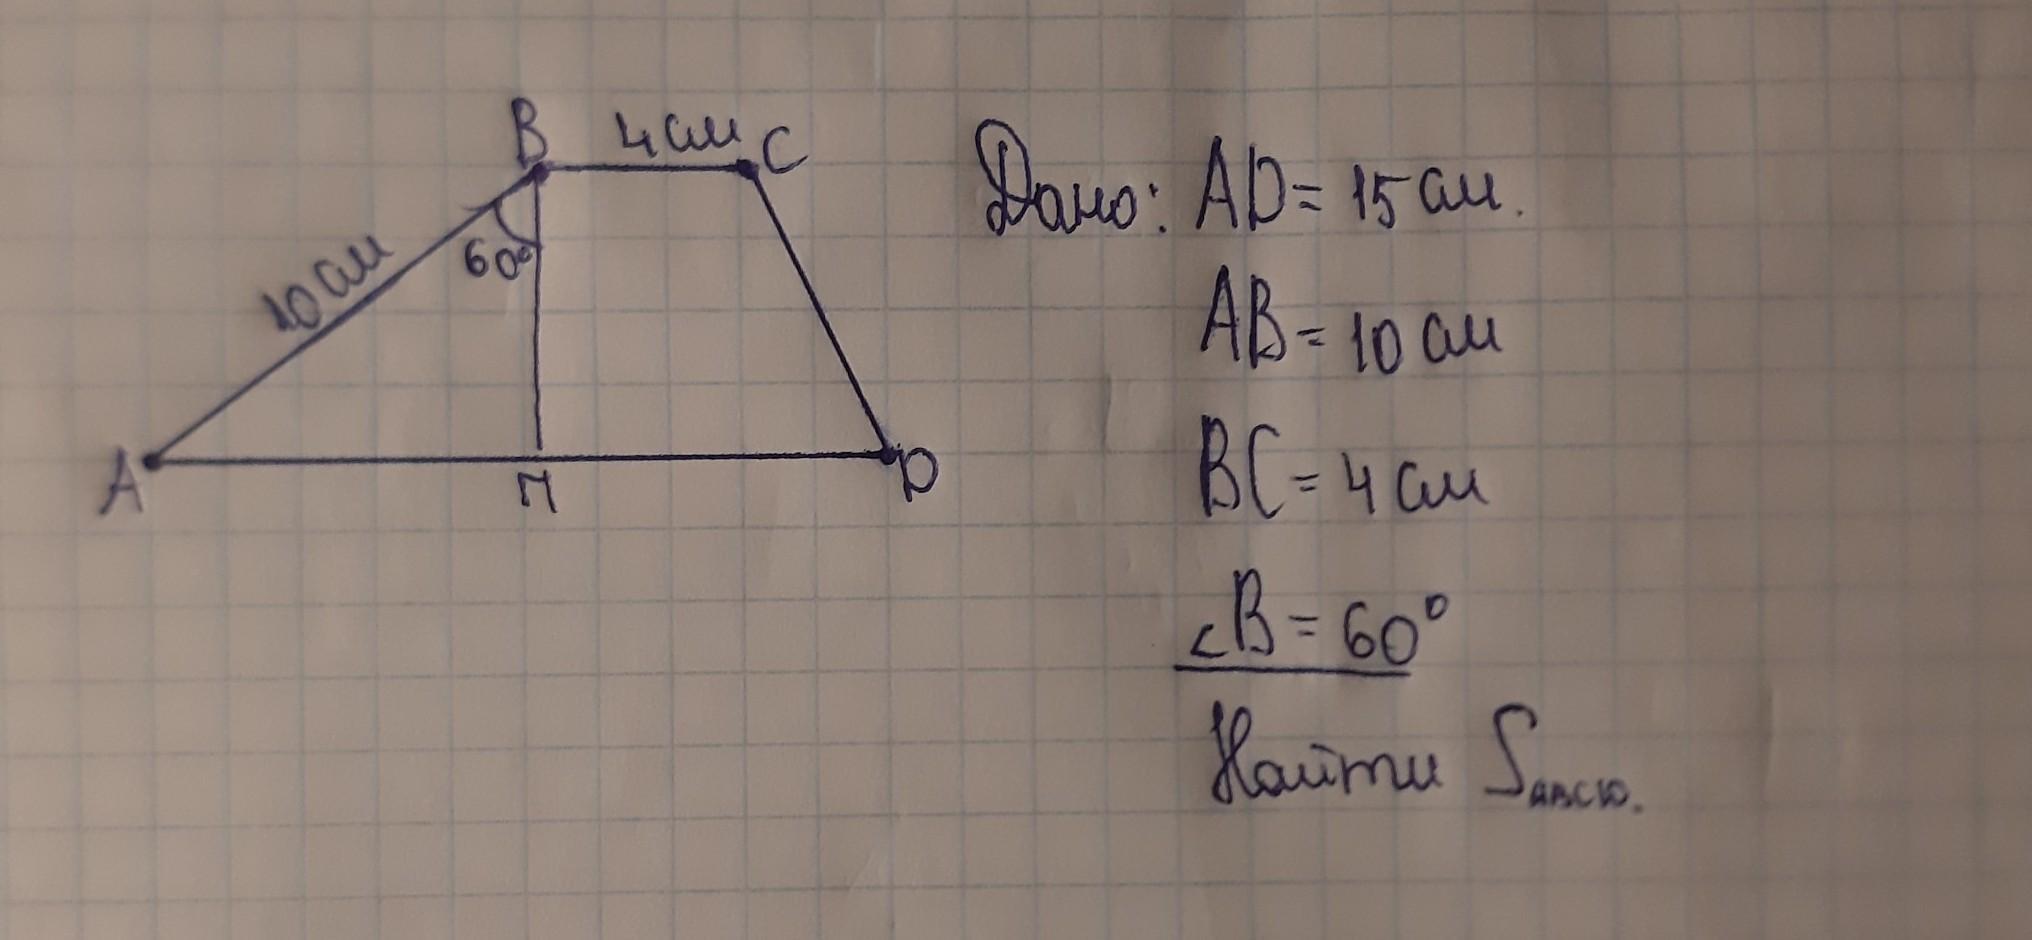 B 4 см C
10 см
60°
A П D
Дано: AD = 15 см.
AB = 10 см
BC = 4 см
∠B = 60°
Найти S_ABCD.